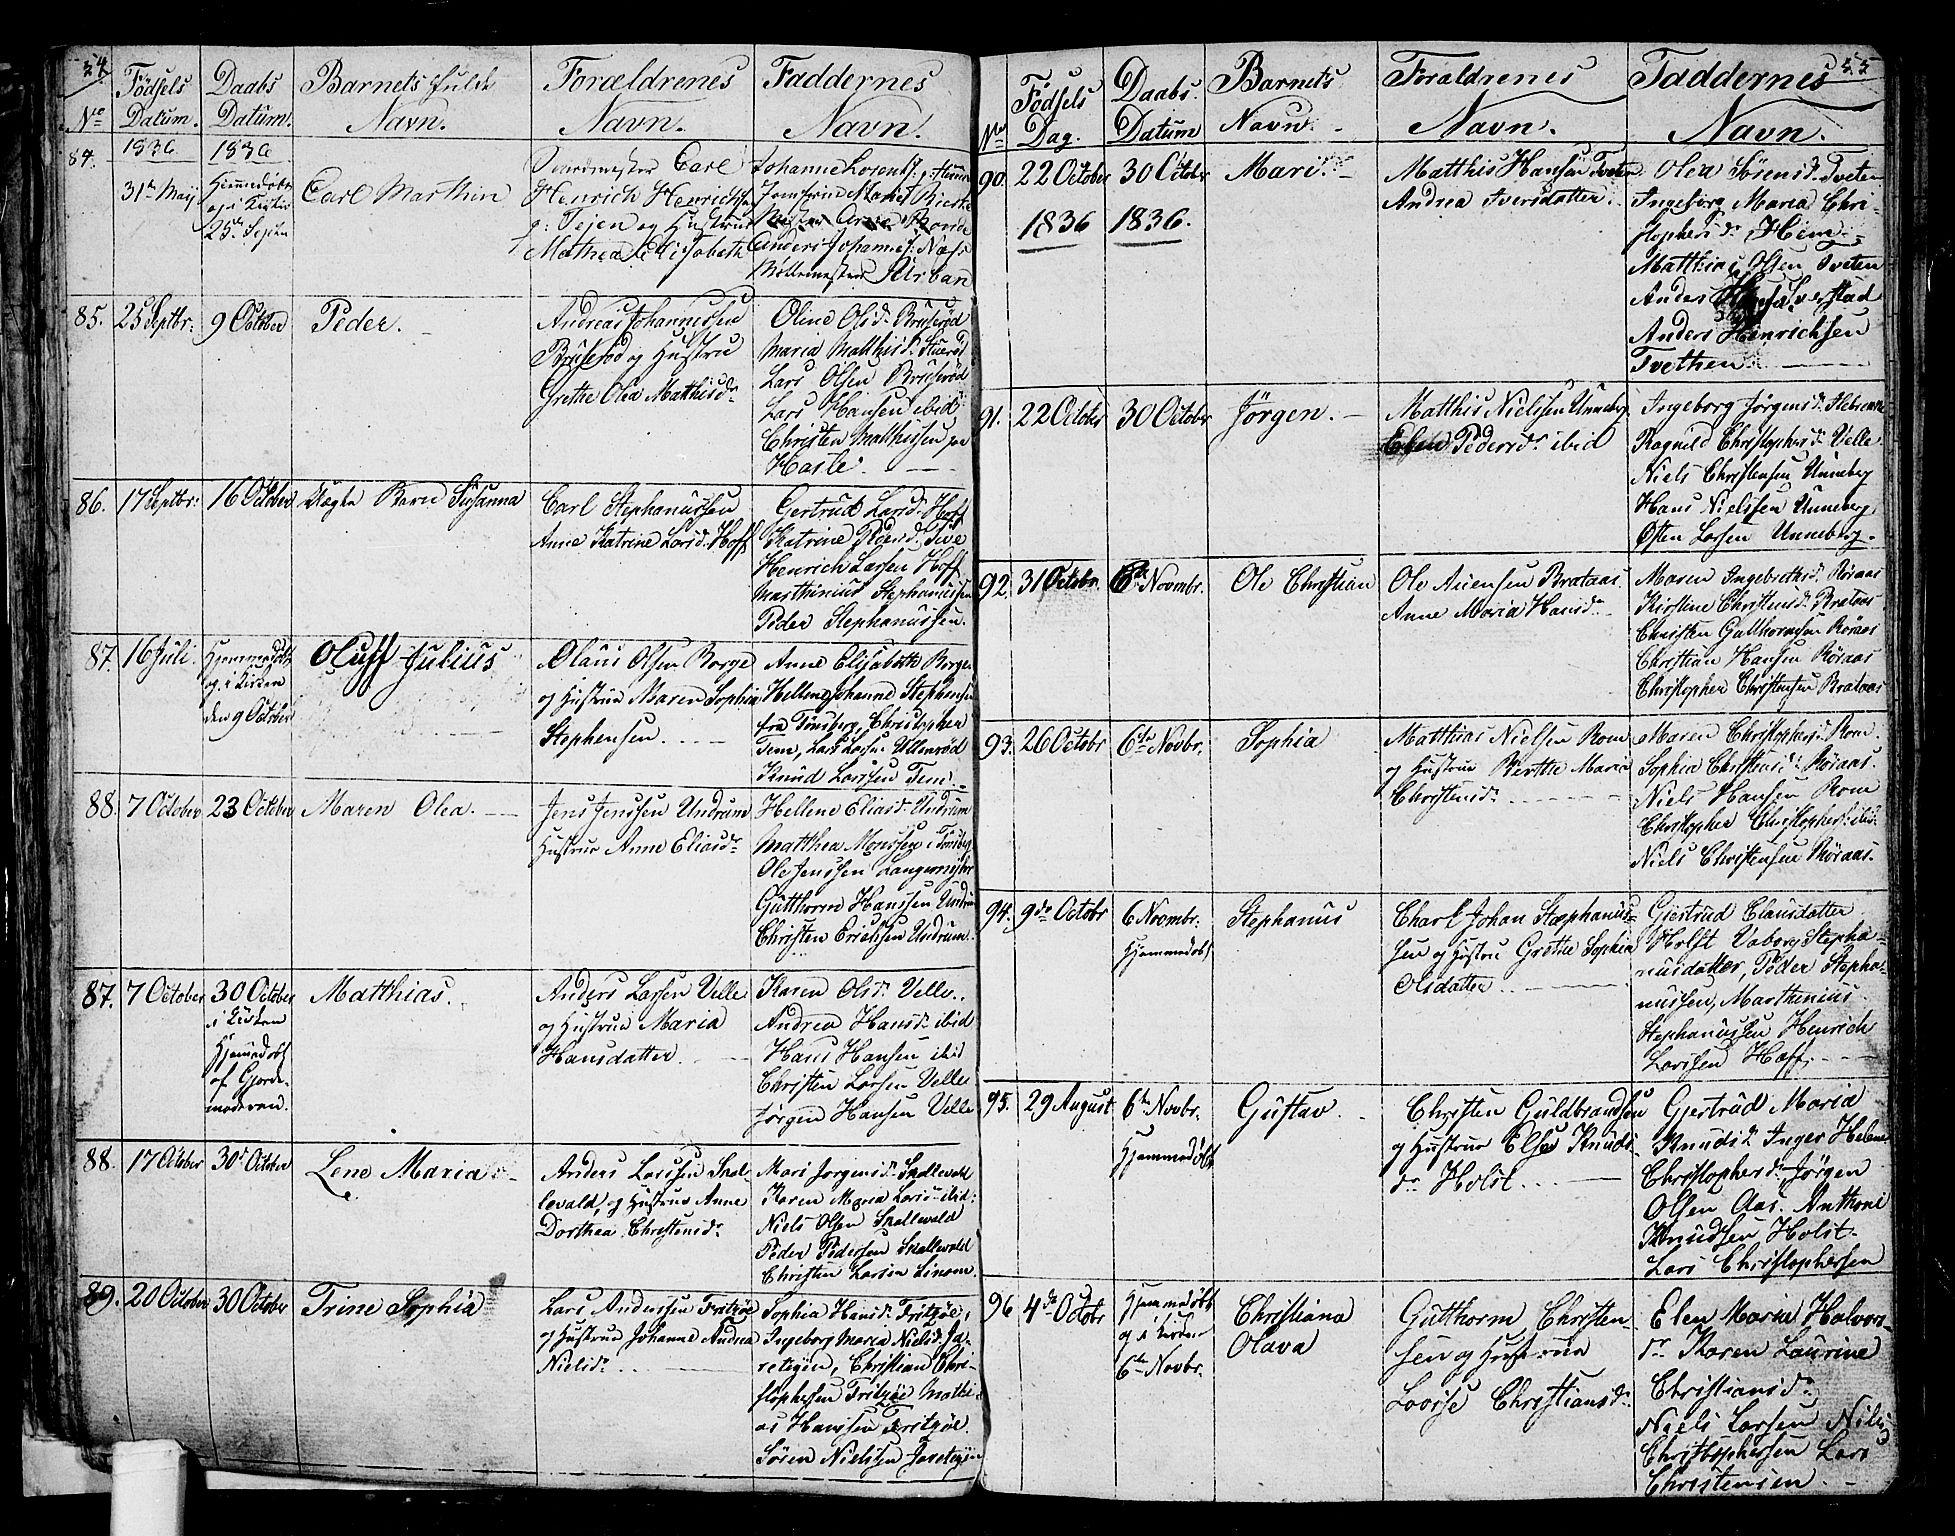 54
No
Fødsels
Datum.
Daabs
Datum.
Barnets fulde
Navn.
Forældrenes
Navn.
Faddernes
Navn.
84.
1836
31te Maij
1836
og i Kirken
25de
Carl Marthin
Carl
Henrich
og Hustrue
Mathea Elisabeth
Johanne
Anders Johannes: Næs
Møllemester
85.
25 Septbr:
9 October
Peder.
Andreas Johannessen
Bruserød og Hustru
Grethe Olea Mathisdr
Oline Olsdr Bruserød
Maria Matthisdr
Lars Olsen Bruserød
Lars Hansen ibid
Christen Matthissen paa
Hasle.
86.
17 Septbr:
16 October
Uægte Barn Susanna
Carl Stephanussen
Anne Katrine Larsdr Hoff
Gertrud Larsdr Hoff
Katrine
Henrich Larsen Hoff
Marthinius Stephanussen
Peder Stephanussen.
87.
16 Juli.
Hjemmedøbt
og i Kirken
den 9 October
Oluff Julius
Olaus Olsen Borge
og Hustrue Maren Sophia
Stephensen
Anne Elisabeth Borge
Hellene Johanne Stephensen
fra Tønsberg, Christopher
Tem, Lars Larsen Ullenrød
Knud Larssen Tem.
88.
7 October
23 October
Maren Olea.
Jens Jenssen Undrum
Hustrue Anne Eliasdr
Hellene Eliasdr Undrum
Matthea Monssen i Tønsberg
Ole Jenssen
Gutthorm Hanssen Undrum
Christen Erichsen Undrum.
87.
7 October
30 October
i Kirken
Hjemmedøbt
af Gjorde-
moderen.
Matthias.
Anders Larsen Velle
og Hustrue Maria
Hansdatter.
Karen Olsdr Velle.
Andrea Hansdr ibid
Hans Hansen ibid
Christen Larsen Velle
Jørgen Hansen Velle
88.
17 October
30 October
Lene Maria
Anders Larssen Skal-
levald, og Hustrue Anne
Dorthea Christensdr
Mari Jorgensdr Skallevald
Karen Maria Larsdr ibid:
Niels Olsen Skallevald
Peder Pedersen Skallevald
Christen Larsen Linom.
89.
20 October
30 October
Trine Sophia
Lars Anderssen Fritzøe
og Hustrue Johanne Andrea
Nielsdr
Sophia Hansdr Fritzøe,
Ingeborg Maria Nielsdr Ja-
retegen, Christian Chri-
stophersen Fritzøe Mathi-
as Hanssen Fritzøe.
Søren Nielssen Jaretegen
55
No
Fødsels
Dag.
Daabs
Datum
Barnets
Navn.
Forældrenes
Navn.
Faddernes
Navn.
90.
22 October
1836
30 Octobr
1836.
Mari.
Matthis Hansen Tveten
Andrea Iversdatter.
Olea Sørensdr Tveten
Ingeborg Maria Chri-
stophersdr Hem
Matthias Olsen Tveten
Anders
Anders Henrichsen
Tvethen.
91.
22 Octobr
30 October
Jörgen.
Matthis Nielssen Unneberg
Elsen Pedersdr ibid
Ingeborg Jørgensdr
Ragnild Christophersdr Velle
Niels Christensen Unneberg
Hans Nielssen Unneberg
Osten Larsen Unneberg.
92.
31 Octobr.
6te Novmbr.
Ole Christian
Ole Auensen Brataas
Anne Maria Hansdr
Maren Ingebrethsdr Røraas
Kirstine Christensdr Brataas
Christen Gutthormsen Röraas
Christian Hansen Röraas
Christopher Christensen Brataas
93.
26 Octobr
6te Novbr.
Sophia
Matthias Nielsen Rom
og Hustrue Berthe Maria
Christensdr
Maren Christophersdr Rom.
Sophia Christensdr Röraas.
Niels Hansen Rom
Christopher Christophersen ibid:
Niels Christensen Röraas.
94.
9de Octobr
6 Novmbr.
Hjemmedøbt
Stephanus
Charl Johan Stæphanus-
sen og Hustru Grethe Sophia
Olsdatter
Giertrud Clausdatter
Holst Vaborg Stepha-
nusdatter, Peder Stepha-
nussen, Marthenius
Stephanussen Henrich
Larssen Hoff.
95.
29 August
6te Novbr.
Hjemmedøbt
Gustav
Christen Guldbrandsen
og Hustrue Else Knuds-
dr Holst
Gjertrud Maria
Knudsdr Inger Helene
Christophersdr Jørgen
Olsen Aas. Anthoni
Knudsen Holst.
Lars Christophersen
96
4de Octobr
Hjemmedøbt
og i Kirken
6te Novbr.
Christiana
Olava
Gutthorm Christen-
sen og Hustrua
Lovise Christiansdr
Elen Marie Halvors-
dr Karen Laurine
Christiansdr
Niels Larsen Niels
Christophersen Lars
Christensen.